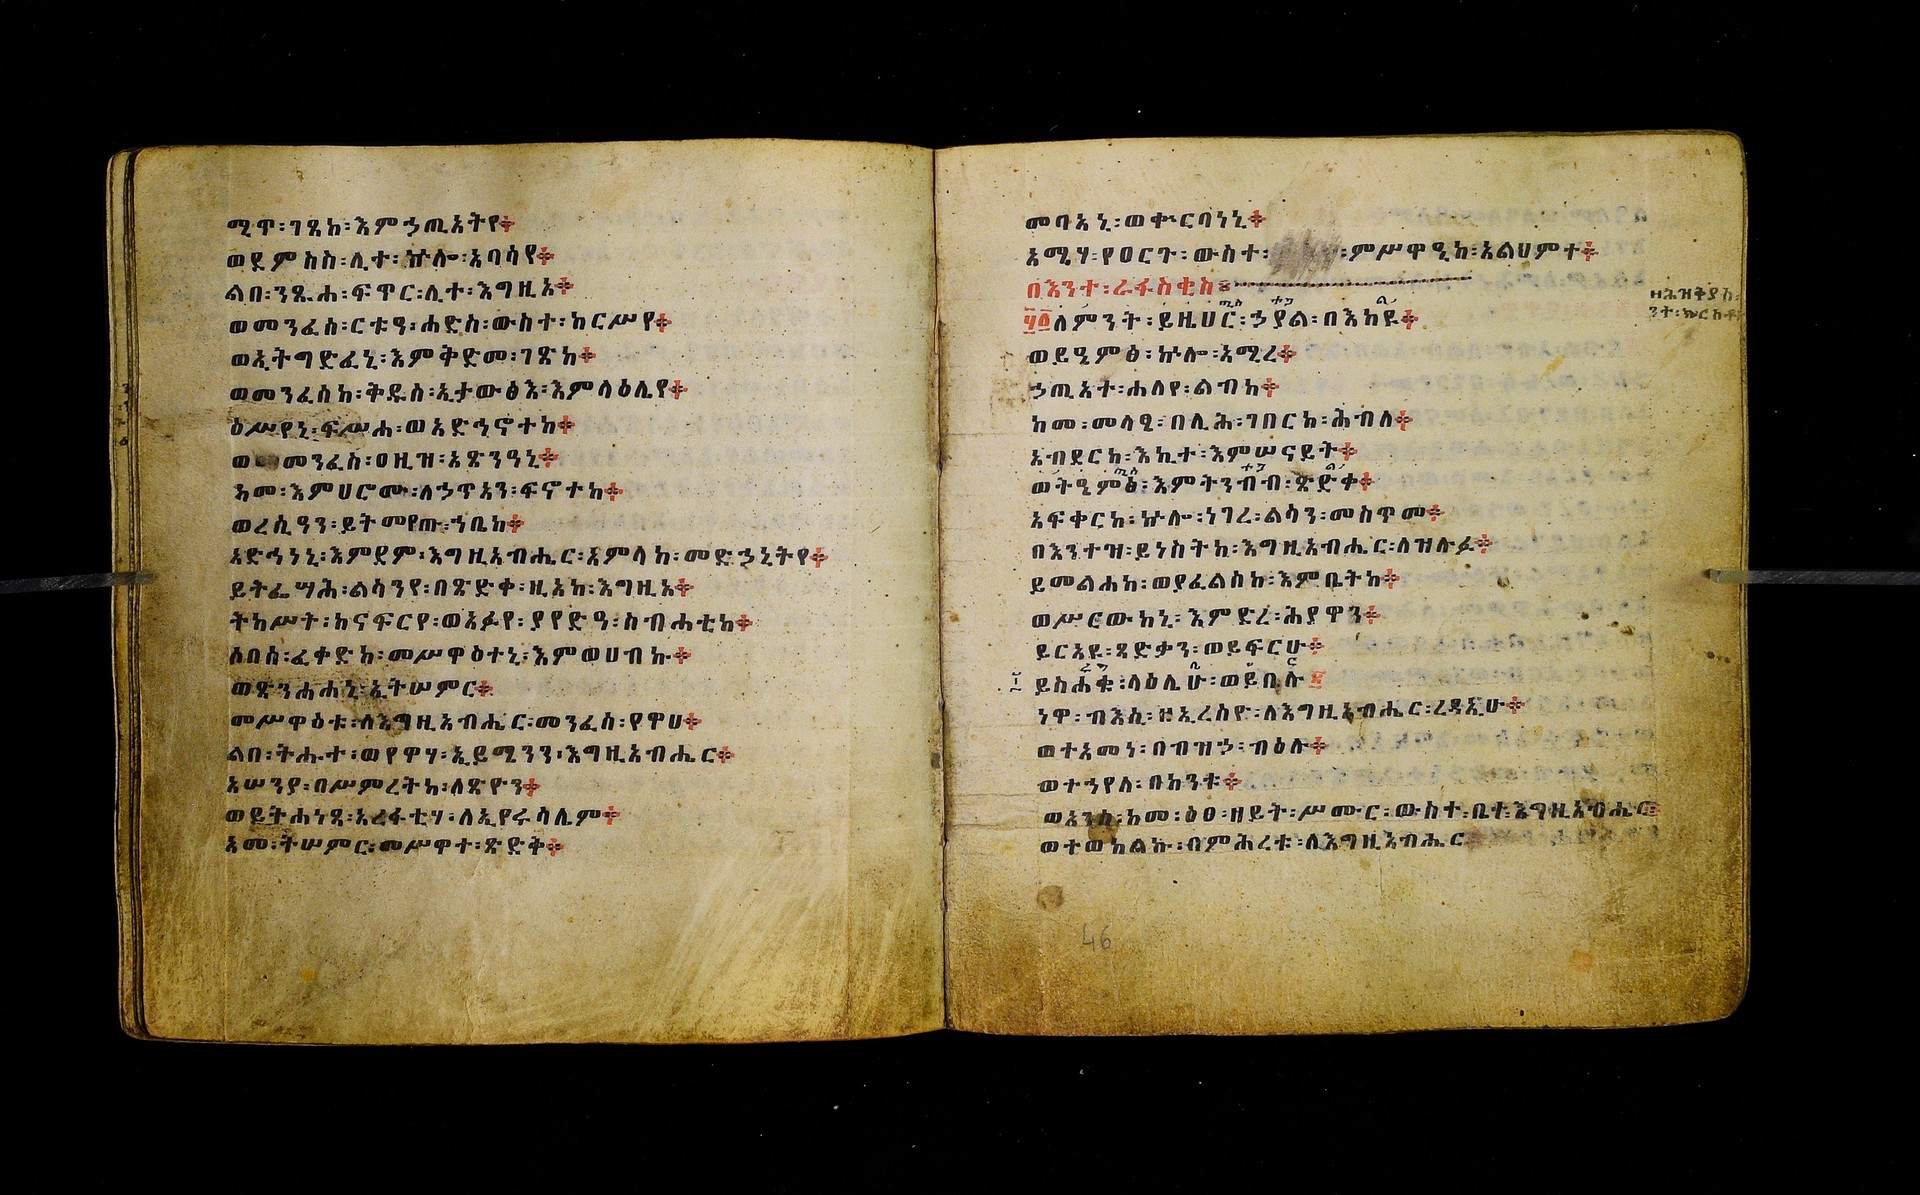 ሚጥ፡ገጸከ፡እምኃጢአትየ፨
ወደምስስ፡ሊተ፡ኵሎ፡አባሳየ፨
ልበ፡ንጹሐ፡ፍጥር፡ሊተ፡እግዚአ፨
ወመንፈሰ፡ርቱዓ፡ሐድስ፡ውስተ፡ከርሥየ፨
ወኢትግድፈኒ፡እምቅድመ፡ገጽከ፨
ወመንፈስከ፡ቅዱሰ፡ኢታውፅእ፡እምላዕሌየ፨
ዕሥየኒ፡ፍሥሐ፡ወአድኅኖተከ፨
መንፈስ፡ዐዚዝ፡አጽንዓኒ፨
ከመ፡እምሀሮሙ፡ለኃጥአን፡ፍኖተከ፨
ወረሲዓን፡ይትመየጡ፡ኀቤከ፨
አድኅነኒ፡እምደም፡እግዚአብሔር፡አምላከ፡መድኃኒትየ፨
ይትፌሣሕ፡ልሳንየ፡በጽድቀ፡ዚአከ፡እግዚአ፨
ትከሥት፡ከናፍርየ፡ወአፉየ፡ያየድዓ፡ስብሐቲከ፨
ሰበሰ፡ፈቀድከ፡መሥዋዕተኒ፡እምወሀብኩ፨
ወጽንሐሐኒ፡ኢትሠምር፨
መሥዋዕቱ፡ለእግዚአብሔር፡መንፈስ፡የዋህ፨
ልበ፡ትሑተ፡ወየዋሃ፡ኢይሜንን፡እግዚአብሔር፨
አሠንያ፡በሥምረትከ፡ለጽዮን፨
ወይትሐነጻ፡አረፋቲሃ፡ለኢየሩሳሌም፨
አመ፡ትሠምር፡መሥዋተ፡ጽድቅ፨
መባአኒ፡ወቍርባነኒ፨
አሜሃ፡የዐርጉ፡ውስተ፡ምሥዋዒከ፡አልህምተ፨
በእንተ፡ራፋስቂስ፨
፶፩ለምንት፡ይዚሀር፡ኃያል፡በእከዩ፨
ወይዔምፅ፡ኵሎ፡አሚረ፨
ኃጢአት፡ሐለየ፡ልብከ፨
ከመ፡መላፂ፡በሊሕ፡ገበርከ፡ሕብለ፨
አብደርከ፡እኪተ፡እምሠናይት፨
ወትዔምፅ፡እምትንብብ፡ጽድቀ፨
አፍቀርከ፡ኵሎ፡ነገረ፡ልሳን፡መስጥመ፨
በእንተዝ፡ይነስትከ፡እግዚአብሔር፡ለዝሉፉ፨
ይመልሐከ፡ወያፈልሰከ፡እምቤትከ፨
ወሥርውከኒ፡እምድረ፡ሕያዋን፨
ይርአዩ፡ጻድቃን፡ወይፍርሁ፨
ይስሕቁ፡ላዕሌሁ፡ወይቤሉ
ነዋ፡ብእሲ፡ዘኢረሰዮ፡ለእግዚአብሔር፡ረዳኢሁ፨
ወተአመነ፡በብዝኃ፡ብዕሉ፨
ወተኀየለ፡በከንቱ፨
ወአንሰ፡ከመ፡ዕፀ፡ዘይት፡ሥሙር፡ውስተ፡ቤተ፡እግዚአብሔር፨
ወተወከልኩ፡በምሕረቱ፡ለእግዚአብሔር
46